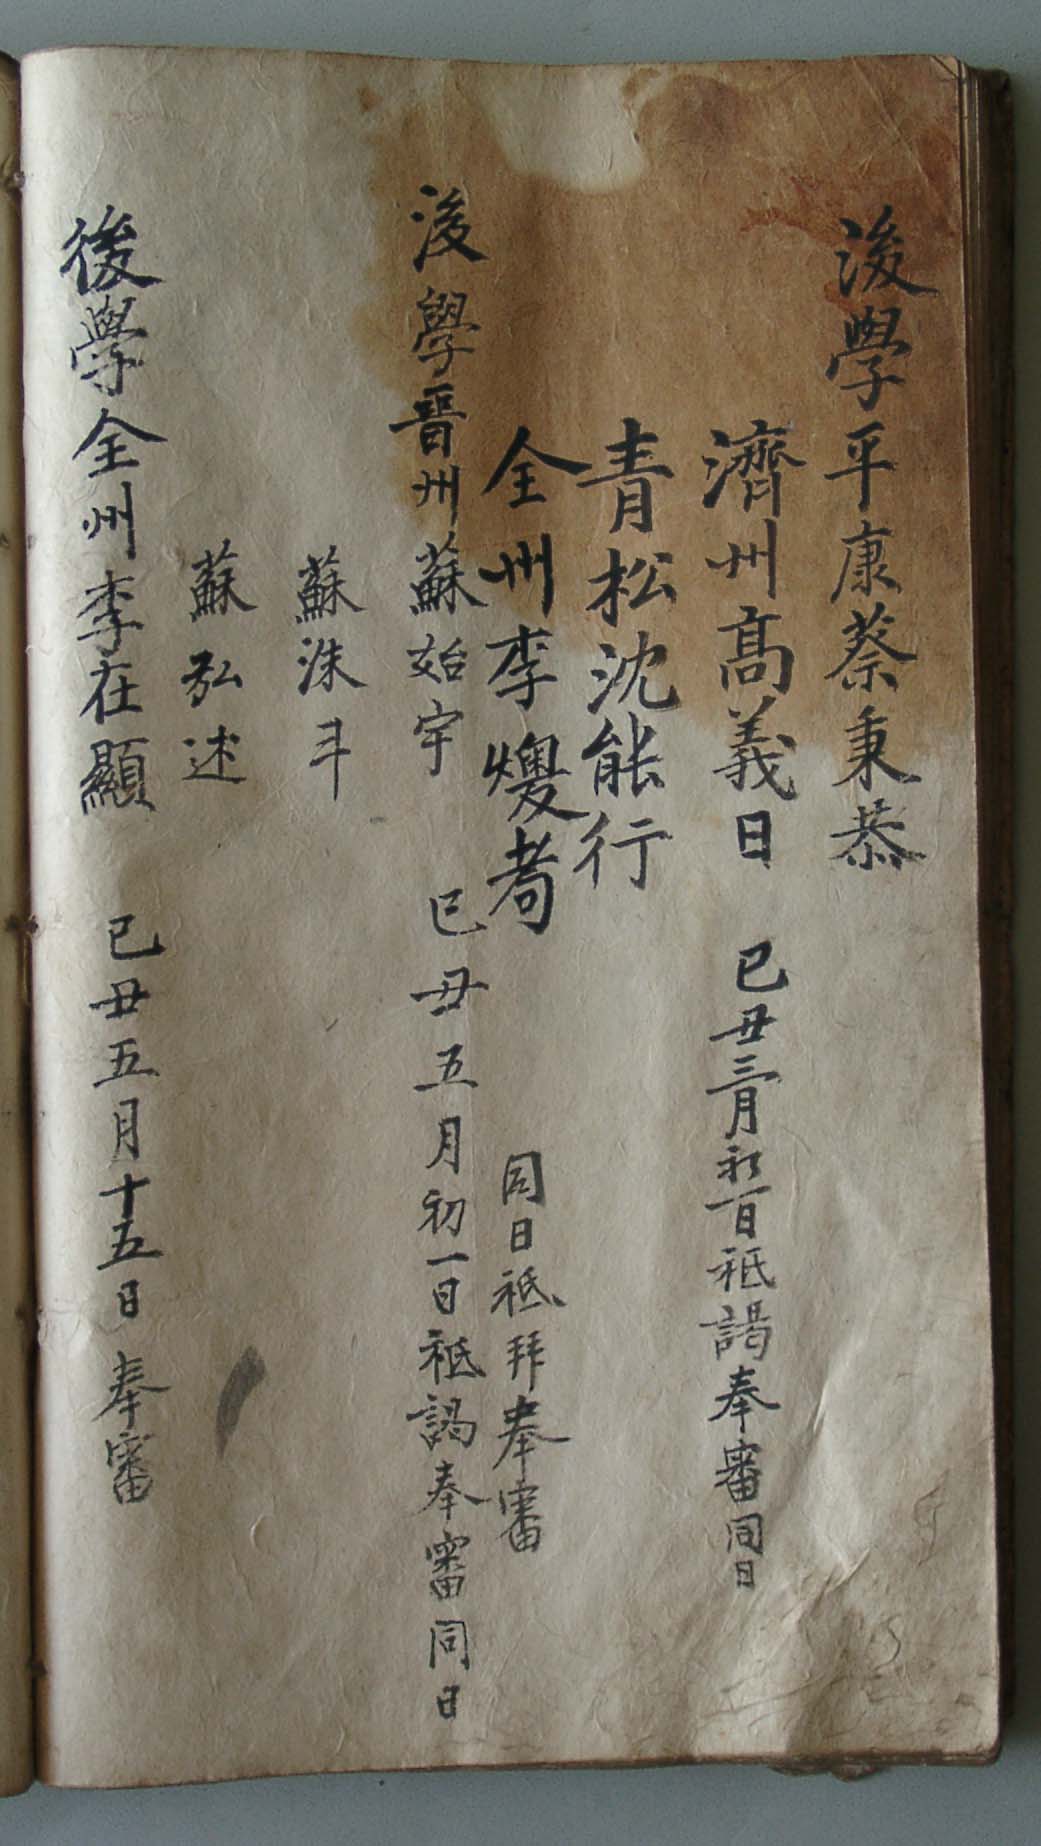 後學平康蔡秉恭
濟州高義日 己丑三月初一日祗謁奉審同日
青松沈能行
全州李熳耈 同日祗拜奉審
後學晋州蘇始宇 己丑五月初一日祗謁奉審同日
蘇洙斗
蘇弘述
後學全州李在顯 己丑五月十五日奉審